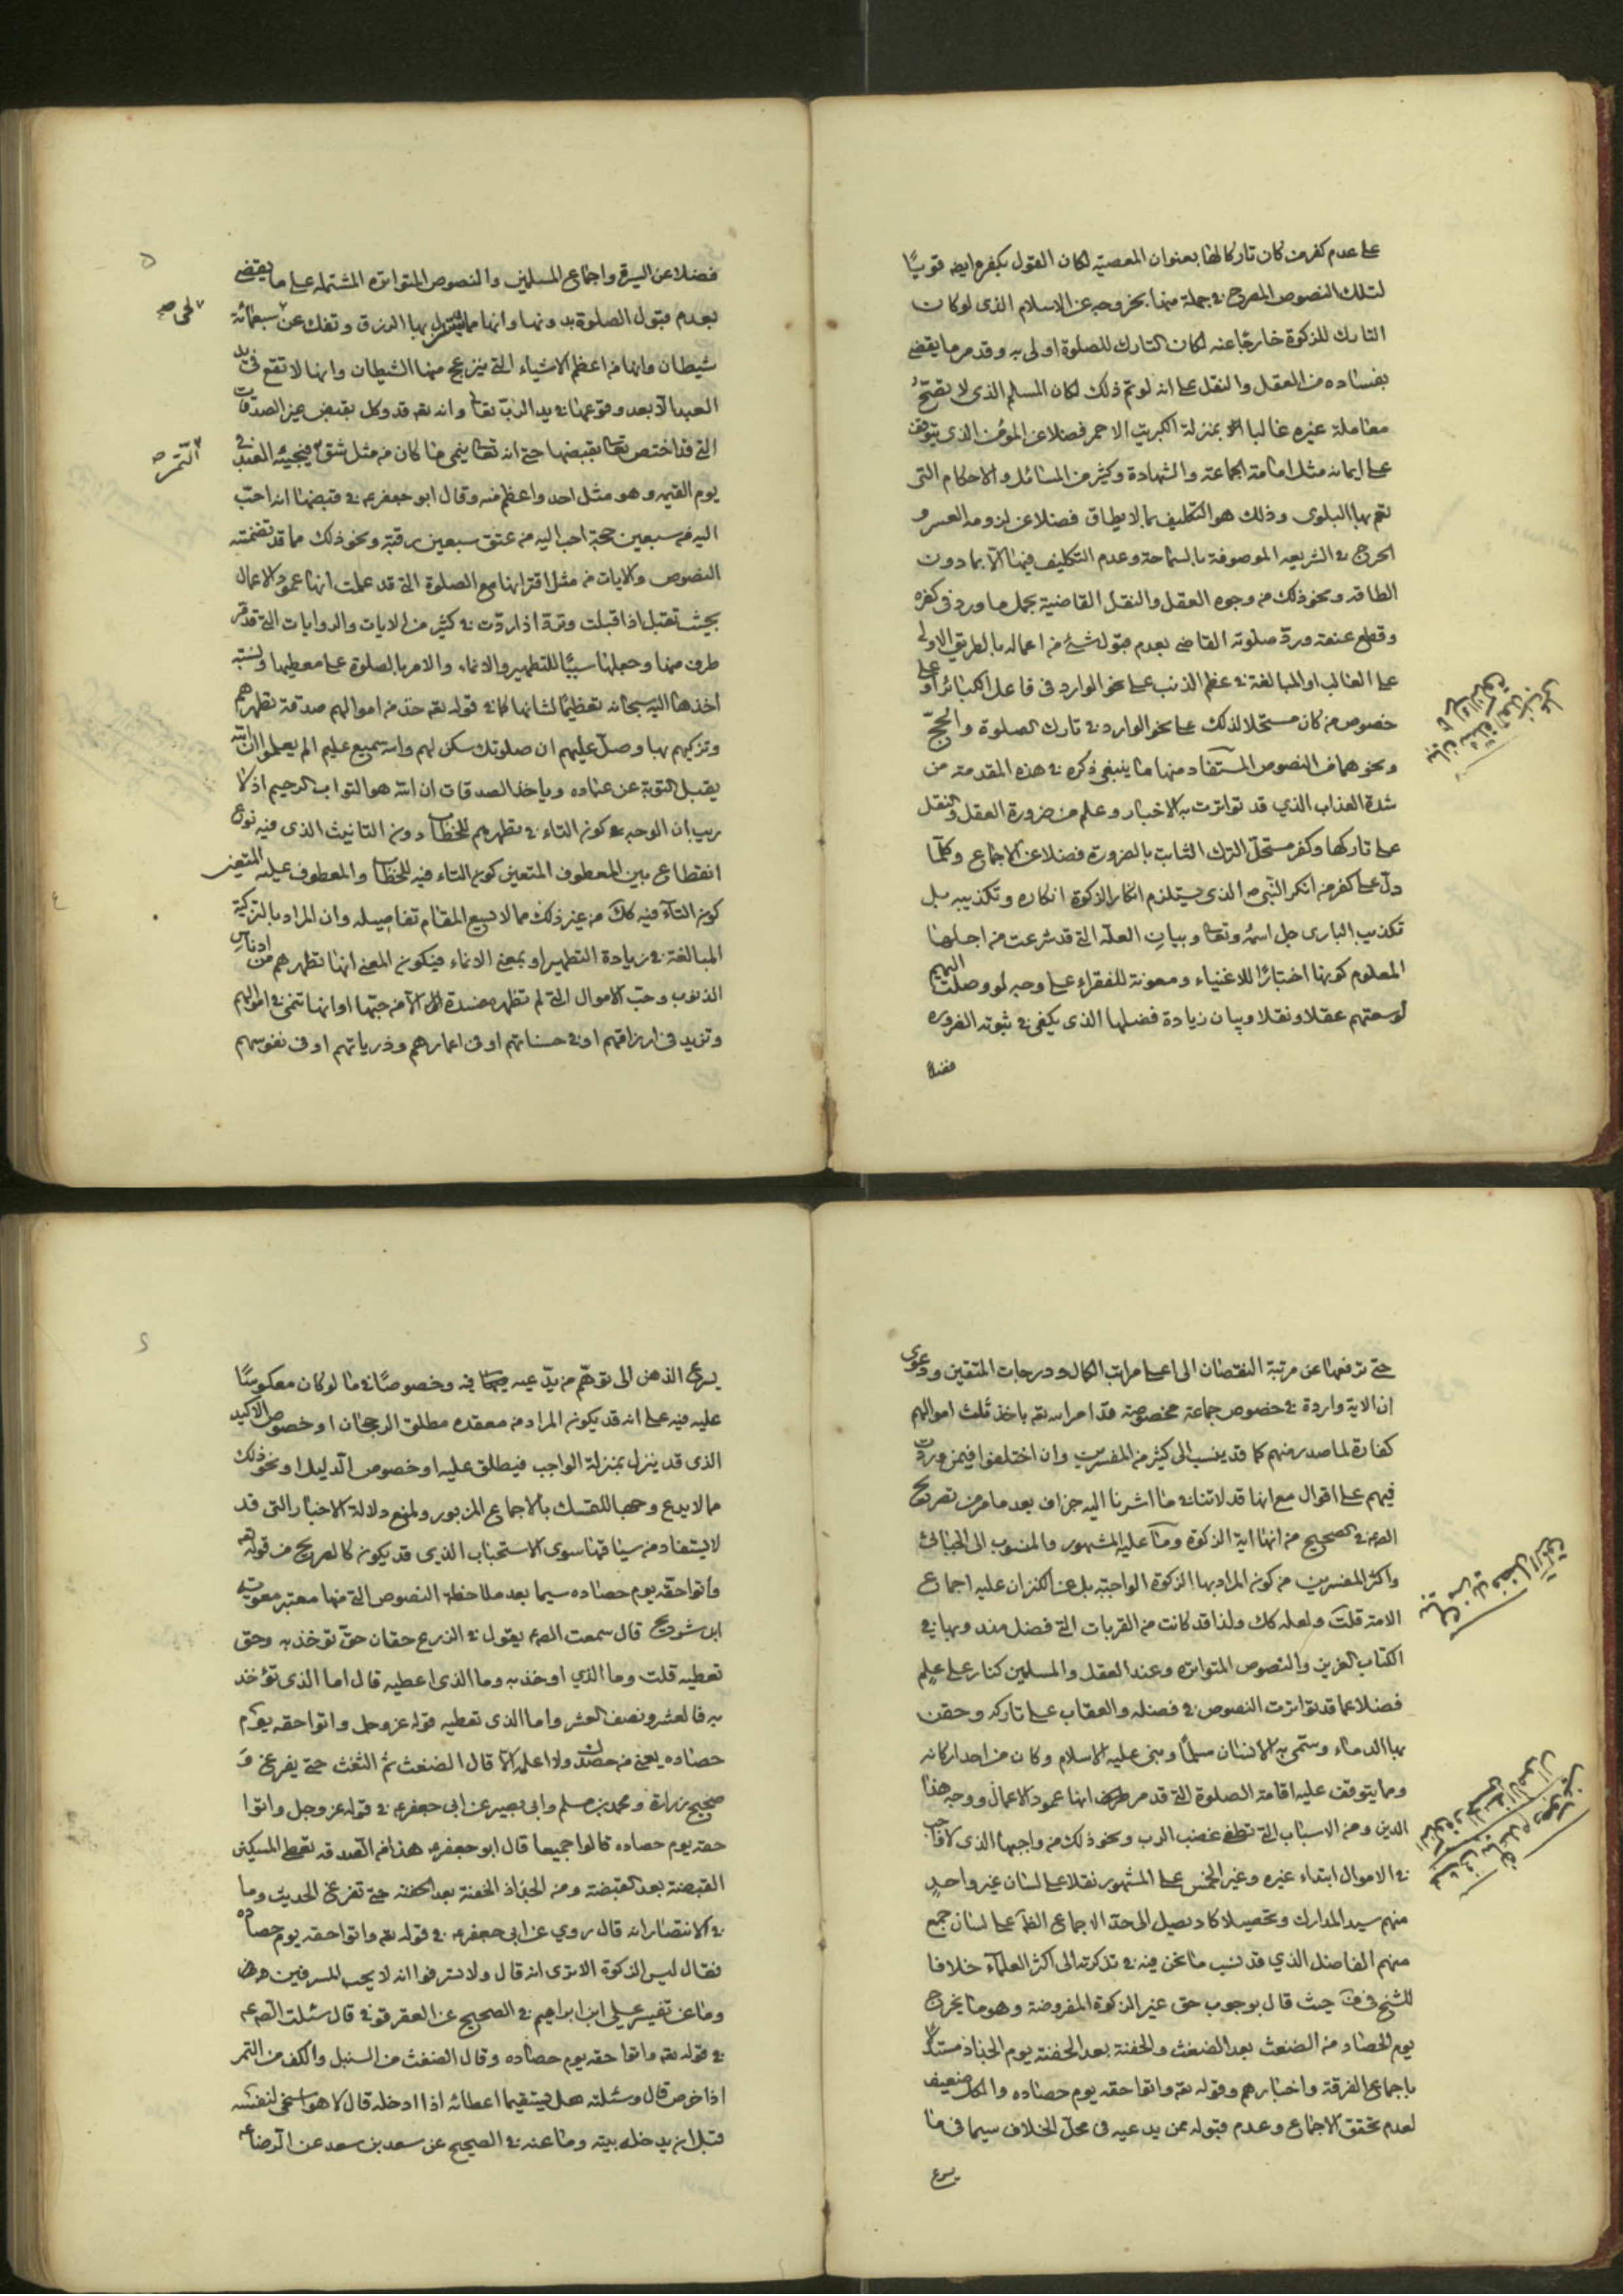 على عدم كفر من كان تاركا لها بعنوان المعصية لكان القول بكفره ايضه قويًا
لتلك النصوص المصرح في جملة منها بخروجه عن الاسلام الذى لو كان
التارك للزكوة خارجًا عنه لكان التارك للصلوة اولى به وقد مر ما يقضى
بفساده من العقل والنقل على انه لو تم ذلك لكان المسلم الذى لا تصحّ
معاملة غيره غالبا بمنزلة الكبريت الاحمر فضلا عن المؤمن الذى يتوقف
على ايمانه مثل امامة الجماعة والشهادة وكثير من المسائل والاحكام التى
تعم بها البلوى وذلك هو التكليف بما لا يطاق فضلا عن لزومه العسر و
الحرج في الشريعه الموصوفة بالسماحة وعدم التكليف فيها الّا بما دون
الطاقه ونحو ذلك من وجوه العقل والنقل القاضية بحمل ما ورد فى كفره
وقطع عنقه وردّ صلوته القاضى بعدم قبول شئ من اعماله بالطريق الاولى
على الغالب او المبالغة في عظم الذنب على نحو الوارد فى فاعل الكبائر او على
خصوص من كان مستحلا لذلك على نحو الوارد في تارك الصلوة والحجّ
ونحوهما من النصوص المستفاد منها ما ينبغى ذكره في هذه المقدمة من
شدة العذاب الذي قد تواترت به الاخبار وعلم من ضرورة العقل والنقل
على تاركها وكفر مستحلّ الترك الثابت بالضرورة فضلا عن الاجماع وكلّما
دلّ على كفر من انكر النبى ص الذى يستلزم انكار الزكوة انكاره وتكذيبه بل
تكذيب البارى جل اسمه وتعا وبيان العلّه التى قد شرعت من اجلها
المعلوم كونها اختبارًا للاغنياء ومعونة للفقراء على وجه لو وصلت اليهم
لوسعتهم عقلا ونقلا وبيان زيادة فضلها الذى يكفى في ثبوته الضروره
فضلا
فضلا عن السيرة واجماع المسلمين والنصوص المتواتره المشتمله على ما يقضى
بعدم قبول الصلوة بدونها وانها مما يستنزل بها الرزق وتفك عن سبعمائة
لحى صح
شيطان وانها من اعظم الاشياء التى ينزعج منها الشيطان وانها لا تقع فى يد
العبد الّا بعد وقوعها في يد الرب تعالى وانه تعه قد وكل بقبض غير الصدقات
التى قد اختص تعا بقبضها حتى انه تعا ينمى ما كان من مثل شق فيجيئه العبد في
التّمر صح
يوم القيمه وهو مثل احد واعظم منه وقال ابو جعفر ع في قبضها انه احبّ
اليه من سبعين حجة احب اليه من عتق سبعين رقبة ونحو ذلك مما قد تضمنته
النصوص والايات من مثل اقترانها مع الصلوة التى قد علمت انها عمود الاعمال
بحيث تقبل اذا قبلت وتردّ اذا ردّت في كثير من الايات والروايات التى قد مر
طرف منها وجعلها سببًا للتطهير والانماء والامر بالصلوة على معطيها ونسبة
اخذها اليه سبحانه تعظيمًا لشانها كما في قوله تعه خذ من اموالهم صدقة تطهرهم
وتزكيهم بها وصلّ عليهم ان صلوتك سكن لهم والله سميع عليم الم يعلموا ان الله
يقبل التوبة عن عباده وياخذ الصدقات ان الله هو التواب الرحيم اذ لا
ريب ان الوجه كون التاء في تطهرهم للخطاب دون التانيث الذى فيه نوع
انقطاع بين المعطوف المتعين كون التاء فيه للخطاب والمعطوف عليه المتعين
كون التآء فيه كك من غير ذلك مما لا يسع المقام تفاصيله وان المراد بالتزكية
المبالغة في زيادة التطهير او بمعنى الانماء فيكون المعنى انها تطهرهم من ادناس
الذنوب وحبّ الاموال التى لم تظهر مفسدة الّا من حبّها او انها تنمى في اموالهم
وتزيد فى ارزاقهم او في حسناتهم او فى اعمارهم وذرياتهم او فى نفوسهم
حتى ترفعها عن مرتبة النقصان الى اعلى مراتب الكمال ودرجات المتقين ودعوى
ان الاية واردة في خصوص جماعة مخصوصة قد امر الله تعه باخذ ثلث اموالهم
كفارة لما صدر منهم كما قد ينسب الى كثير من المفسرين وان اختلفوا فيمن وردت
فيهم على اقوال مع انها قد لا تنافى ما اشرنا اليه جزاف بعد ما مر من تصريح
الص ع في الصحيح من انها اية الزكوة وما عليه المشهور والمنسوب الى الجبائى
واكثر المفسرين من كون المراد بها الزكوة الواجبة بل عن الكنز ان عليه اجماع
الامة قلت ولعله كك ولذا قد كانت من القربات التى فضل مندوبها في
الكتاب العزيز والنصوص المتواتره وعند العقل والمسلمين كنار على علم
فضلا عما قد تواترت النصوص في فضله والعقاب على تاركه وحقن
بها الدماء وسمّى به الانسان مسلمًا وبنى عليه الاسلام وكان من احد اركانه
وما يتوقف عليه اقامة الصلوة التى قد مر انها عمود الاعمال ووجه هذا
الدين ومن الاسباب التى تطفى غضب الرب ونحو ذلك من واجبها الذى لا واجب
في الاموال ابتداء غيره وغير الخمس على المشهور نقلا على لسان غير واحدٍ
منهم سيد المدارك وتحصيلا كاد يصل الى حدّ الاجماع الظّ على لسان جمع
منهم الفاضل الذي قد نسب ما نحن فيه في تذكرته الى اكثر العلماء خلافا
للشيخ فى ف حيث قال بوجوب حق غير الزكوة المفروضة وهو ما يخرج
يوم الحصاد من الضغث بعد الضغث والحفنة بعد الحفنة يوم الجذاذ مستدلا
باجماع الفرقة واخبارهم وقوله تعه واتوا حقه يوم حصاده والكل ضعيف
لعدم تحقق الاجماع وعدم قبوله ممن يدعيه فى محلّ الخلاف سيما فى ما
يسرع
يسرع الذهن الى توهّم مدّعيه فيه وخصوصًا في ما لو كان معكوسًا
عليه فيه على انه قد يكون المراد من معقده مطلق الرجحان او خصوص الاكيد
الذى قد ينزل بمنزلة الواجب فيطلق عليه او خصوص الدليل او نحو ذلك
مما لا يدع وجها للتمسك بالاجماع المزبور ولمنع دلالة الاخبار التى قد
لا يستفاد من سياقها سوى الاستحباب الذى قد يكون كالصريح من قوله تعه
واتوا حقه يوم حصاده سيما بعد ملاحظة النصوص التى منها معتبر معوية
ابن شريح قال سمعت الص ع يقول في الزرع حقان حق تؤخذ به وحق
تعطيه قلت وما الذي اوخذ به وما الذى اعطيه قال اما الذى تؤخذ
به فالعشر ونصف العشر واما الذى تعطيه قوله عز وجل واتوا حقه يوم
حصاده يعنى من حصدك ولا اعلمه الّا قال الضغث ثم الضغث حتى يفرغ و
صحيح زرارة ومحمد بن مسلم وابى بصير عن ابى جعفر ع في قوله عز وجل واتوا
حقه يوم حصاده قالوا جميعا قال ابو جعفر ع هذا من الصدقه تعطى المسكين
القبضة بعد القبضة ومن الجذاذ الحفنة بعد الحفنة حتى تفرغ الحديث وما
في الانتصار انه قال روي عن ابى جعفر ع في قوله تعه واتوا حقه يوم حصاده
فقال ليس الزكوة الا ترى انه قال ولا تسرفوا انه لا يحب المسرفين
وما عن تفسير على ابن ابراهيم في الصحيح عن العقرقوفى قال سئلت الص ع
في قوله تعه واتوا حقه يوم حصاده وقال الضغث من السنبل والكف من التمر
اذا خرص قال وسئلته هل يستقيم اعطائه اذا ادخله قال لا هو اسخى لنفسه
قبل ان يدخله بيته وما عنه في الصحيح عن سعد بن سعد عن الرضا ع